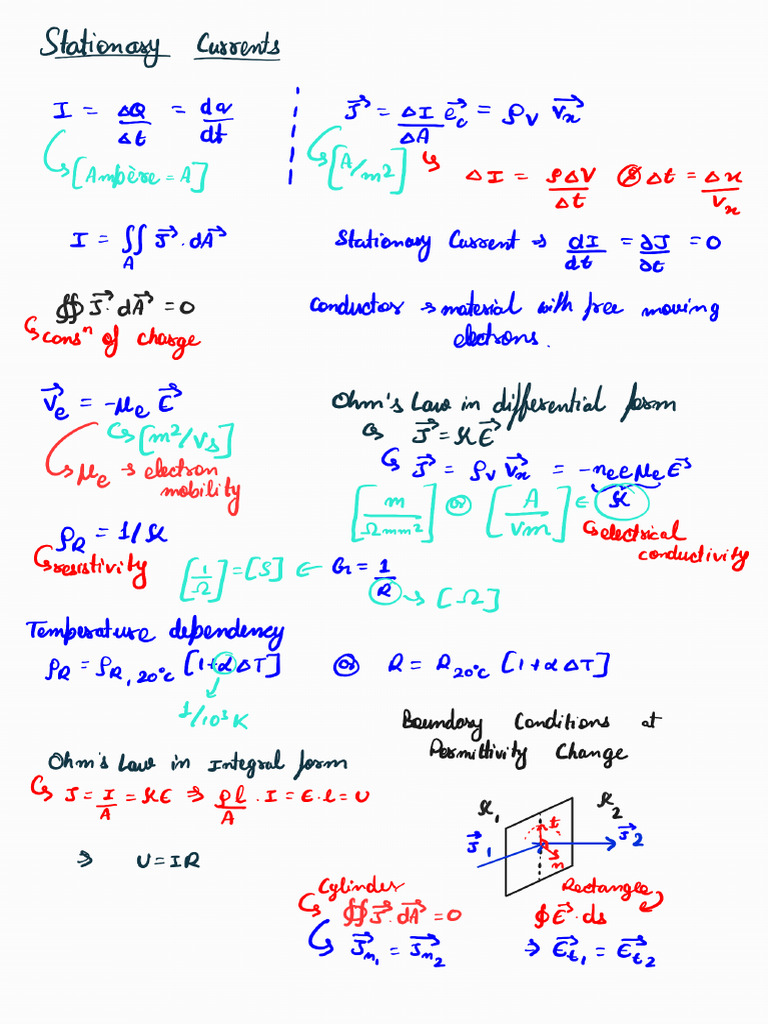 Stationary Currents
I = ΔQ/Δt = dQ/dt
↳ [Ampère = A]
J⃗ = ΔI/ΔA e⃗c = ρv v⃗x
↳ [A/m²]
↳ ΔI = ρΔV/Δt & Δt = Δx/vx
I = ∬A J⃗ · dA⃗
Stationary Current ⇒ dI/dt = ∂J/∂t = 0
∯ J⃗ · dA⃗ = 0
↳ consⁿ of charge
Conductor → material with free moving
electrons.
v⃗e = -μe E⃗
↳ [m²/Vs]
↳ μe → electron
mobility
Ohm's Law in differential form
↳ J⃗ = κE⃗
↳ J⃗ = ρv v⃗x = -neeμe E⃗
κ
[m/Ωmm²] or [A/Vm] ←
↳ electrical
conductivity
ρR = 1/κ
↳ resistivity
[1/Ω] = [S] ← G = 1/R → [Ω]
Temperature dependency
ρR = ρR,20°C [1+αΔT] or R = R20°C [1+αΔT]
1/10³K
Boundary Conditions at
Permittivity Change
Ohm's Law in Integral form
↳ J = I/A = κE ⇒ ρl/A · I = E·l = U
⇒ U = IR
κ1 κ2
J⃗1 t n J⃗2
Cylinder
↳ ∯ J⃗ · dA⃗ = 0
↳ J⃗n1 = J⃗n2
Rectangle
∮ E⃗ · ds
⇒ E⃗t1 = E⃗t2